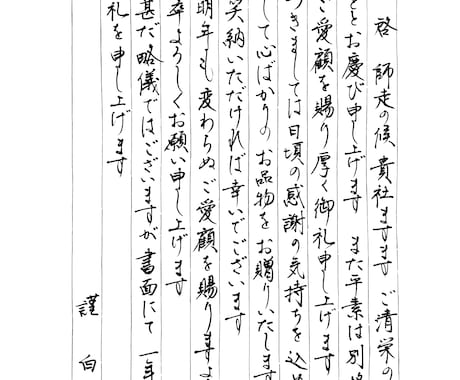 啓 師走の候 貴社ますますご清栄の
とお慶び申し上げます また平素は別
ご愛顧を賜り厚く御礼申し上げます
つきましては日頃の感謝の気持ちを込め
して心ばかりのお品物をお贈りいたします
笑納いただければ幸いでございます
明年も変わらぬご愛顧を賜りますよ
卒よろしくお願い申し上げます
甚だ略儀ではございますが書面にて一年
礼を申し上げます
謹白